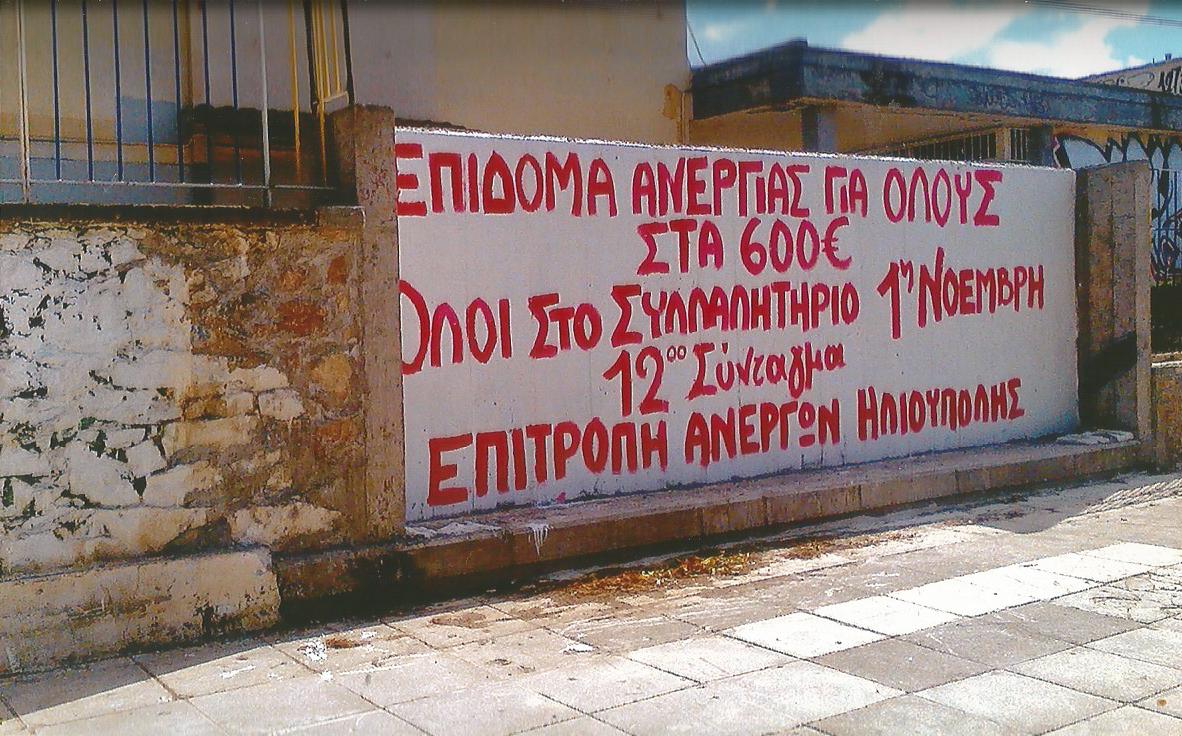 ΕΠΙΔΟΜΑ ΑΝΕΡΓΙΑΣ ΓΙΑ ΟΛΟΥΣ
ΣΤΑ 600€
ΟΛΟΙ ΣΤΟ ΣΥΛΛΑΛΗΤΗΡΙΟ 1η ΝΟΕΜΒΡΗ
12⁰⁰ Σύνταγμα
ΕΠΙΤΡΟΠΗ ΑΝΕΡΓΩΝ ΗΛΙΟΥΠΟΛΗΣ